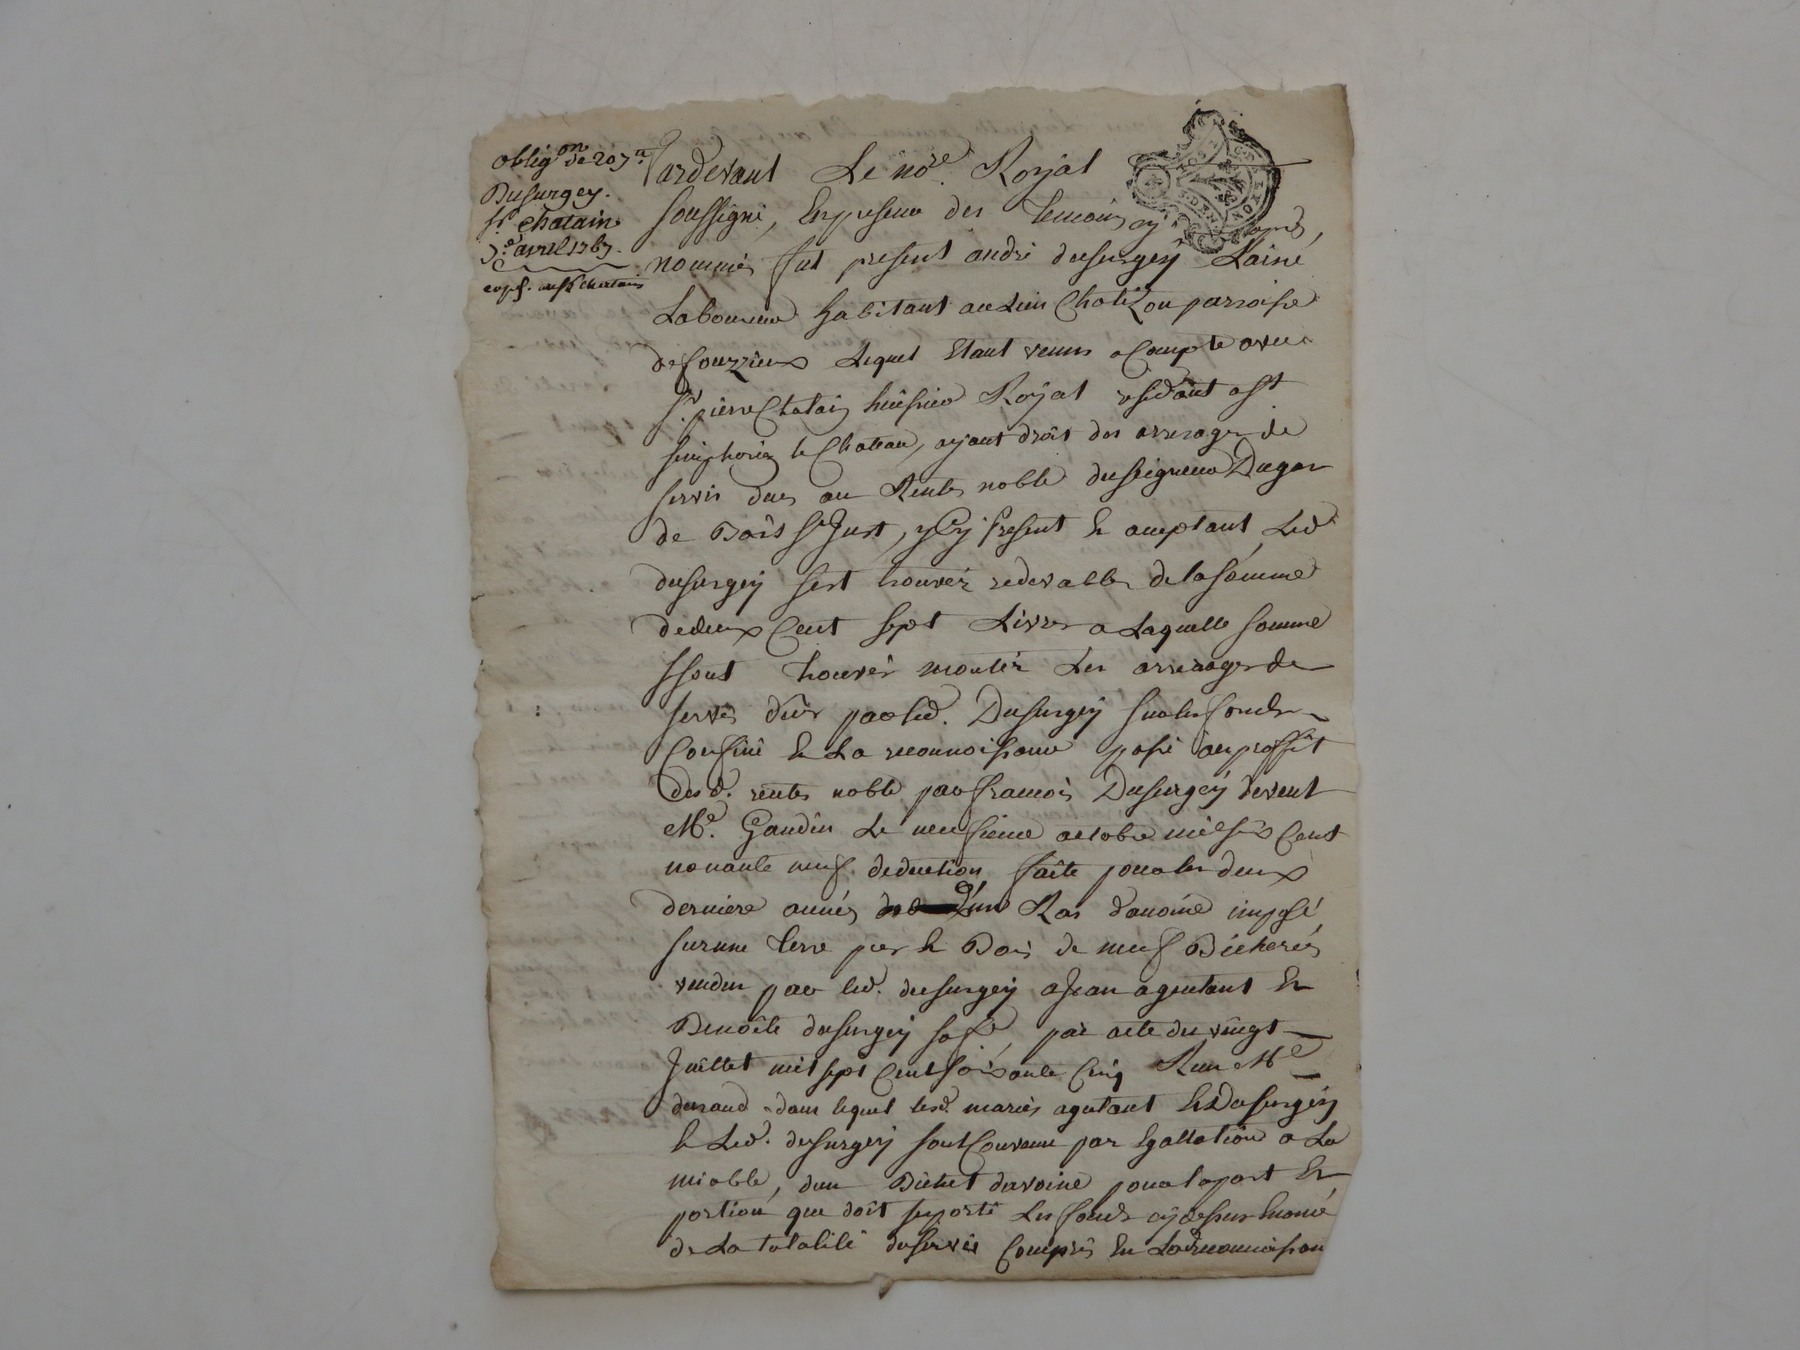 obligon de 207 ll
Dusurgey.
Sr. Chatain
3e. avril 1767.
exp. au sr Chatain
G. D. LYON
Pardevant Le nore. Royal
soussigné, En presence des temoins cy apres
nommés fut present andré dusurgey Lainé
Laboureur habitant au Lieu Chatelzon parroisse
de souzzieux Lequel Etant venus a Compte avec
Sr. pierre Chatain huissier Royal residant a St
simphorien le Chateau, ayant droit des arrerages de
servis dues au Rentes noble du seigneur Dugas
de Bois St Just, ycy Present & acceptant, Led.
dusurgey sest trouvéz redevables de la somme
de deux Cent sept Livres a Laquelle somme
ssont trouvés montéz Les arrerages de
servis dues par led. Dusurgey sur les fonds
Confiné & La reconnoissance passé au proffit
desd. rentes noble par francois Dusurgey devent
Me. Gaudin Le neufsieme octobre mil six Cent
nonante neuf deduction faite pour les deux
derniere annés d'un Ras d'avoine imposé
sur une terre pres & Bois de neuf Bicherés
vendu par led. dusurgey a Jean agoutant &
Benoite dusurgey sa fe, par acte du vingt
Juillet mil sept Cent soixante Cinq Recu Me
durand dans lequel lesd. mariés agoutant & Dusurgey
& Led. dusurgey sont Convenu par Egallation a La
miable, dun Bichet davoine pour la part &
portion que doit suporté Les fonds cy dessus Enoncé
de La totalité du servis Compris En Lad. reconnoissan